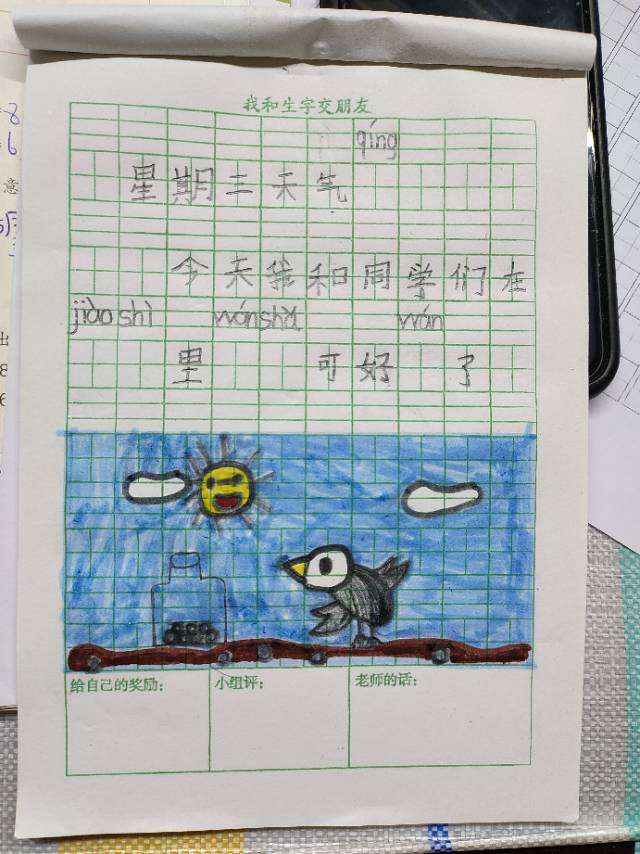 我和生字交朋友
qíng
星期二天气
今天我和同学们在
jiào shì wán shuǎ wán
里 可好 了
给自己的奖励: 小组评: 老师的话: